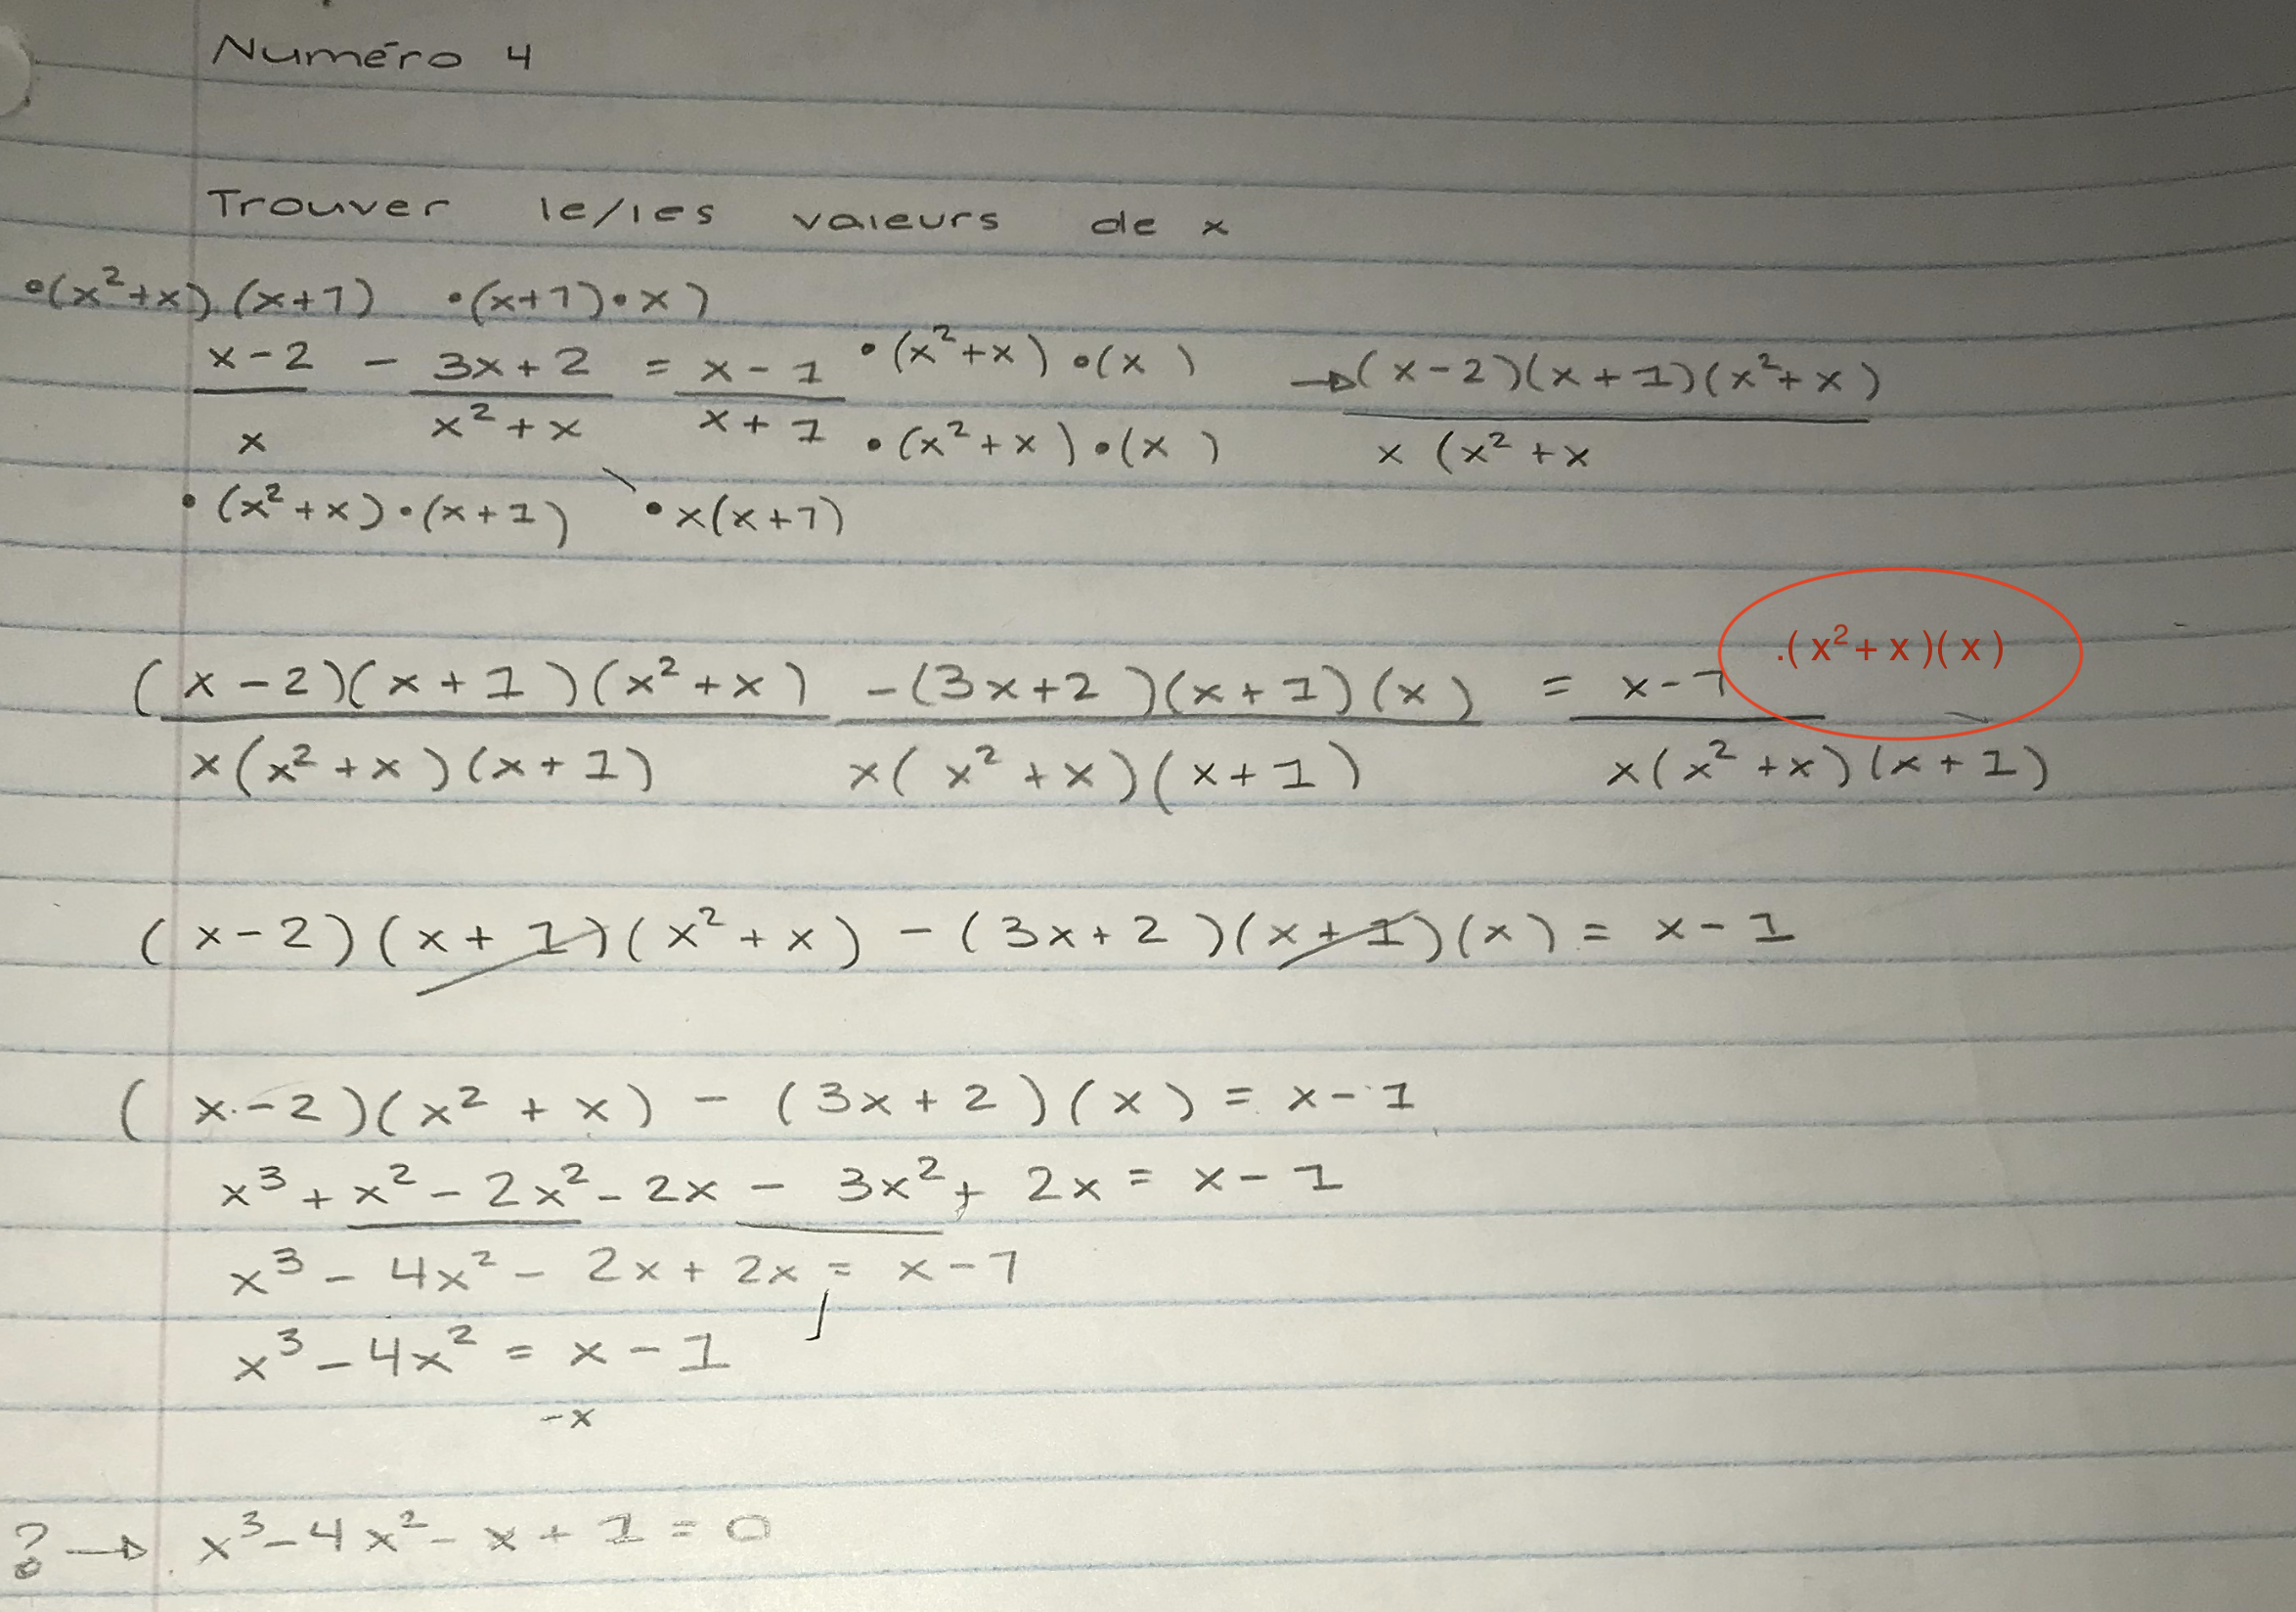 Numéro 4
Trouver le/les valeurs de x
•(x²+x).(x+1) •(x+1)•x)
x-2 - 3x+2 = x-1 •(x²+x)•(x) →(x-2)(x+1)(x²+x)
x x²+x x+1 •(x²+x)•(x) x(x²+x
•(x²+x)•(x+1) •x(x+1)
.(x²+x)(x)
(x-2)(x+1)(x²+x) -(3x+2)(x+1)(x) = x-1
x(x²+x)(x+1) x(x²+x)(x+1) x(x²+x)(x+1)
(x-2)(x+1)(x²+x) - (3x+2)(x+1)(x) = x-1
(x-2)(x²+x) - (3x+2)(x) = x-1
x³+x²-2x²-2x - 3x²+2x = x-1
x³-4x²-2x+2x = x-1
x³-4x² = x-1
-x
? → x³-4x²-x+1=0